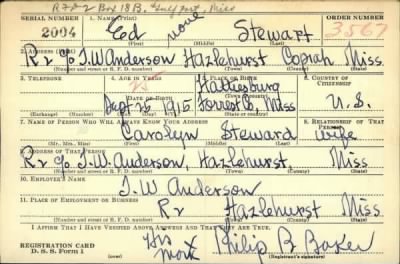 R F D 2 Box 18 B, Gulfport, Miss
SERIAL NUMBER 1. NAME (Print) ORDER NUMBER
2004 Ed none Stewart 3567
(First) (Middle) (Last)
2. ADDRESS (Print)
R 2 c/o J. W Anderson Hazlehurst Copiah Miss.
(Number and street or R. F. D. number) (Town) (County) (State)
3. TELEPHONE 4. AGE IN YEARS 5. PLACE OF BIRTH 6. COUNTRY OF CITIZENSHIP
25 Hattiesburg
DATE OF BIRTH (Town or county)
Sept 1915 Forrest Co, Miss U. S.
(Exchange) (Number) (Mo.) (Day) (Yr.) (State or country)
7. NAME OF PERSON WHO WILL ALWAYS KNOW YOUR ADDRESS 8. RELATIONSHIP OF THAT PERSON
Carolyn Steward Wife
(Mr., Mrs., Miss) (First) (Middle) (Last)
9. ADDRESS OF THAT PERSON
R 2 c/o J. W. Anderson, Hazlehurst, Miss
(Number and street or R. F. D. number) (Town) (County) (State)
10. EMPLOYER'S NAME
J. W Anderson
11. PLACE OF EMPLOYMENT OR BUSINESS
R 2 Hazlehurst Miss
(Number and street or R. F. D. number) (Town) (County) (State)
I AFFIRM THAT I HAVE VERIFIED ABOVE ANSWERS AND THAT THEY ARE TRUE.
REGISTRATION CARD His mark Philip B. Baker
D. S. S. Form 1 (Registrant's signature)